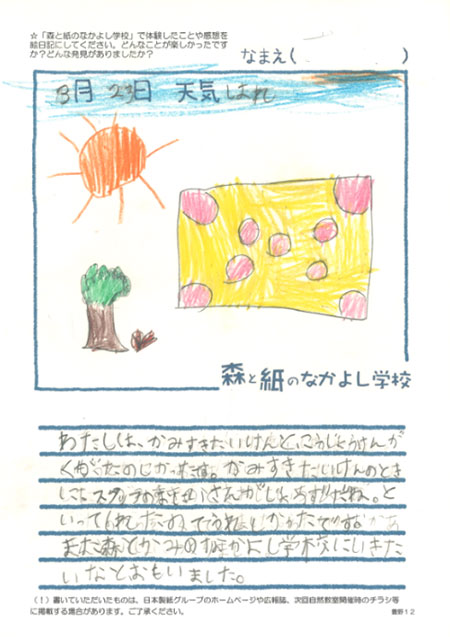 ☆「森と紙のなかよし学校」で体験したことや感想を
絵日記にしてください。どんなことが楽しかったです
か？どんな発見がありましたか？
なまえ( )
8月 23日 天気 はれ
森と紙のなかよし学校
わたしは、かみすきたいけんと、こうじょうけんが
くがたのしかったです。かみすきたいけんのとき
に、スタッフの
さんがじょうずだね。と
いってくれたので、うれしかったです。
また森とかみのなかよし学校にいきた
いなとおもいました。
(！)書いていただいたものは、日本製紙グループのホームページや広報誌、次回自然教室開催時のチラシ等
に掲載する場合があります。ご了承ください。
菅野12